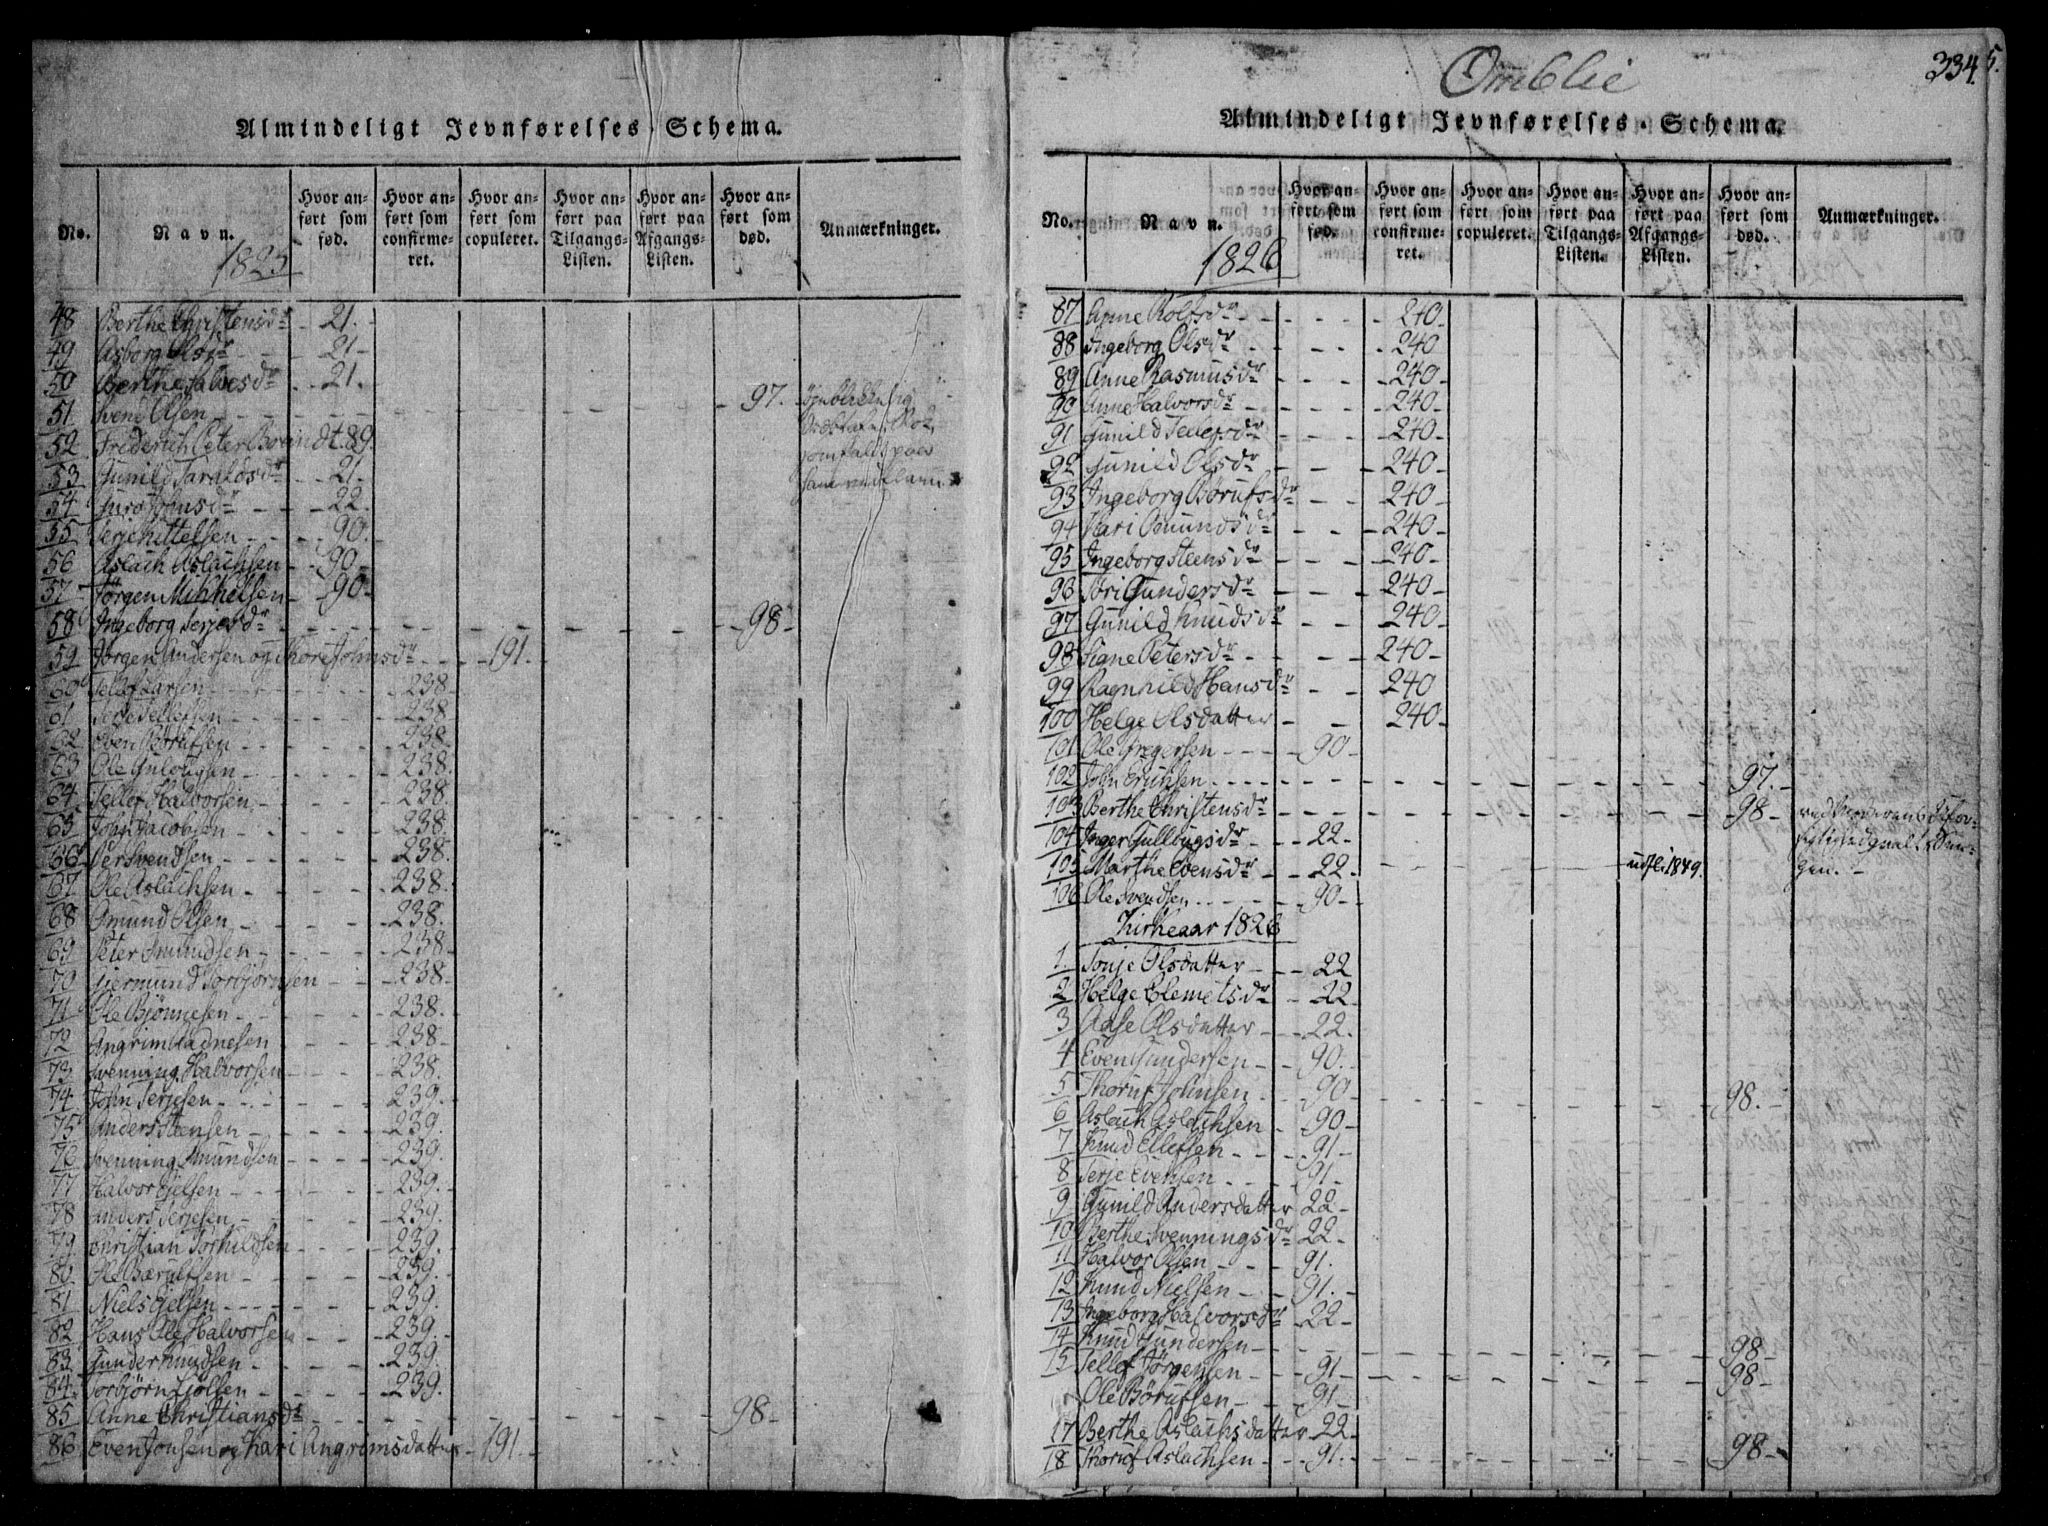 Almindeligt Jevnførelses-Schema.
No. Navn. Hvor anført som fød. Hvor anført som confirmeret. Hvor anført som copuleret. Hvor anført paa Tilgangs-Listen. Hvor anført paa Afgangs-Listen. Hvor anført som død. Anmærkninger.
1825
48 Berthe Christensdr 21.
49 Asborg Olsdr 21
50 Berthe Halvesdr 21.
51 Svend Olsen 97.
52 Frederich Peter 89.
53 Gunild Taraldsdr 21.
54 Guro Johnsdr 22.
55 Terje Kittelsen 90.
56 Aslach Aslachsen 90
57 Jørgen Mikkelsen 90
58 Ingeborg Terjesdr 98
59 Jørgen Andersen og Thore Johnsdr 191.
60 Tellef Larsen 238
61 Terje Tellefsen 238
62 Even Børufsen 238.
63 Ole Gulougsen 238.
64 Tellef Halvorsen 238.
65 John Jacobsen 238.
66 Per Svendsen 238.
67 Ole Aslachsen 238.
68 Omund Olsen 238.
69 Peter Omundsen 238
70 Giermund Torbjørnsen 238.
71 Ole Bjønnesen 238.
72 Angrim Aadnesen 238
73 Svenning Halvorsen 238.
74 John Terjesen 239.
75 Anders Steensen 239.
76 Svenning Omundsen 239.
77 Halvor Ejelsen 239.
78 Anders Terjesen 239.
79 Christian Torkildsen 239.
80 Ole Børulfsen 239.
81 Niels Ejelsen 239.
82 Hans Ole Halvorsen 239.
83 Gunder Knudsen 239.
84 Torbjørn 239.
85 Anne Christiansdr 98
86 Even Jonsen og Kari Angrimsdatter 191.
Omblie
334 5.
Almindeligt Jevnførelses-Schema.
No. Navn. Hvor anført som fød. Hvor anført som confirmeret. Hvor anført som copuleret. Hvor anført paa Tilgangs-Listen. Hvor anført paa Afgangs-Listen. Hvor anført som død. Anmærkninger.
1826
87 Anne Rolfsdr 240
88 Ingeborg Olsdr 240
89 Anne Rasmusdr 240
90 Anne Halvorsdr 240
91 Gunild Tellefsdr 240
92 Gunild Olsdr 240
93 Ingeborg Børufsdr 240
94 Kari Omundsdr 240
95 Ingeborg Steensdr 240
96 Siri Gundersdr 240
97 Gunild Knudsdr 240
98 Signe Petersdr 240
99 Ragnhild Hansdr 240
100 Helge Olsdatter 240
101 Ole Gregersen 90
102 John 97.
103 Berthe Christensdr 98
104 Inger Gullougsdr 22.
105 Marthe Evensdr 22. udfl. 1849.
106 Ole Svendsen 90
Kirkeaar 1826
1. Tonje Olsdatter 22
2 Helge Clemetsdr 22
3 Aase Olsdatter 22.
4 Even Gundersen 90.
5 Thoruf Johnsen 90 98.
6 Aslach Aslachsen 90
7 Knud Ellefsen 91
8 Terje Evensen 91
9 Gunild Andersdatter 22
10 Berthe Svenningsdr 22.
11 Halvor Olsen 91.
12 Knud Nielsen 91.
13 Ingeborg Halvorsdr 22
14 Knud Gundersen 98
15 Tellef Jørgensen 91 98
Ole Børufsen 91
17 Berthe Aslachsdatter 22
18 Thoruf Aslachsen 91. 98